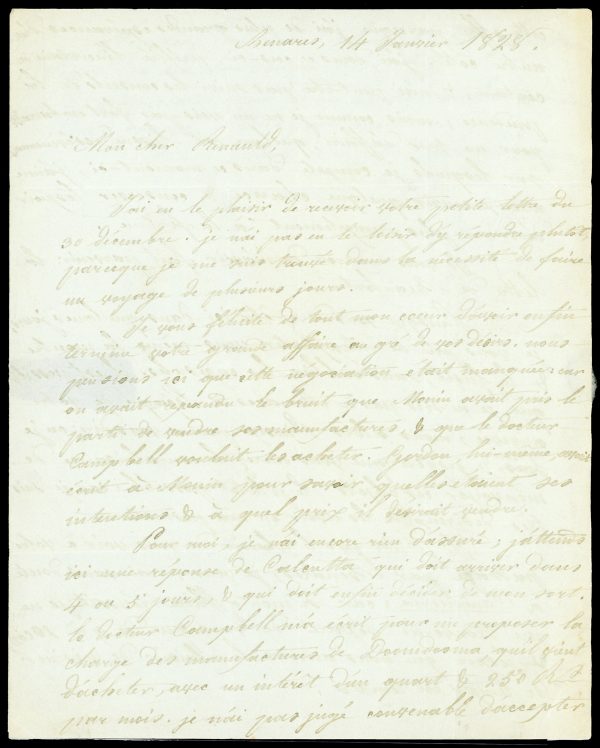 Benares, 14 Janvier 1828.
Mon cher Renauld,
J'ai eu le plaisir de recevoir votre petite lettre du
30 décembre. je n'ai pas eu le loisir d'y répondre plutôt,
parceque je me suis trouvé dans la nécessité de faire
un voyage de plusieurs jours.
Je vous félicite de tout mon coeur d'avoir enfin
terminé votre grande affaire au gré de vos désirs. nous
pensions ici que cette negociation était manquée: car
on avait répandu le bruit que Morin avait pris le
parti de vendre ses manufactures, & que le docteur
Campbell voulait les acheter. Gordon, lui-même, avait
écrit à Morin pour savoir quelles etoient ses
intentions & à quel prix il desirait vendre.
Pour moi, je n'ai encore rien d'assuré; j'attends
ici une réponse de Calcutta qui doit arriver dans
4 ou 5 jours, & qui doit enfin décider de mon sort.
le docteur Campbell m'a écrit pour me proposer la
charge des manufactures de Doomdooma, qu'il vient
d'acheter, avec un intérêt d'un quart & 250 Rs
par mois. je n'ai pas jugé convenable d'accepter